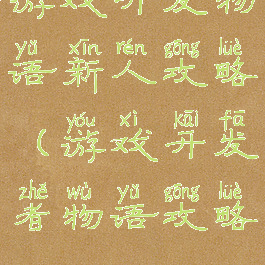 游戏开发物
yǔ xīn rén gōng lüè
语新人攻略
yóu xì kāi fā
(游戏开发
zhě wù yǔ gōng lüè
者物语攻略